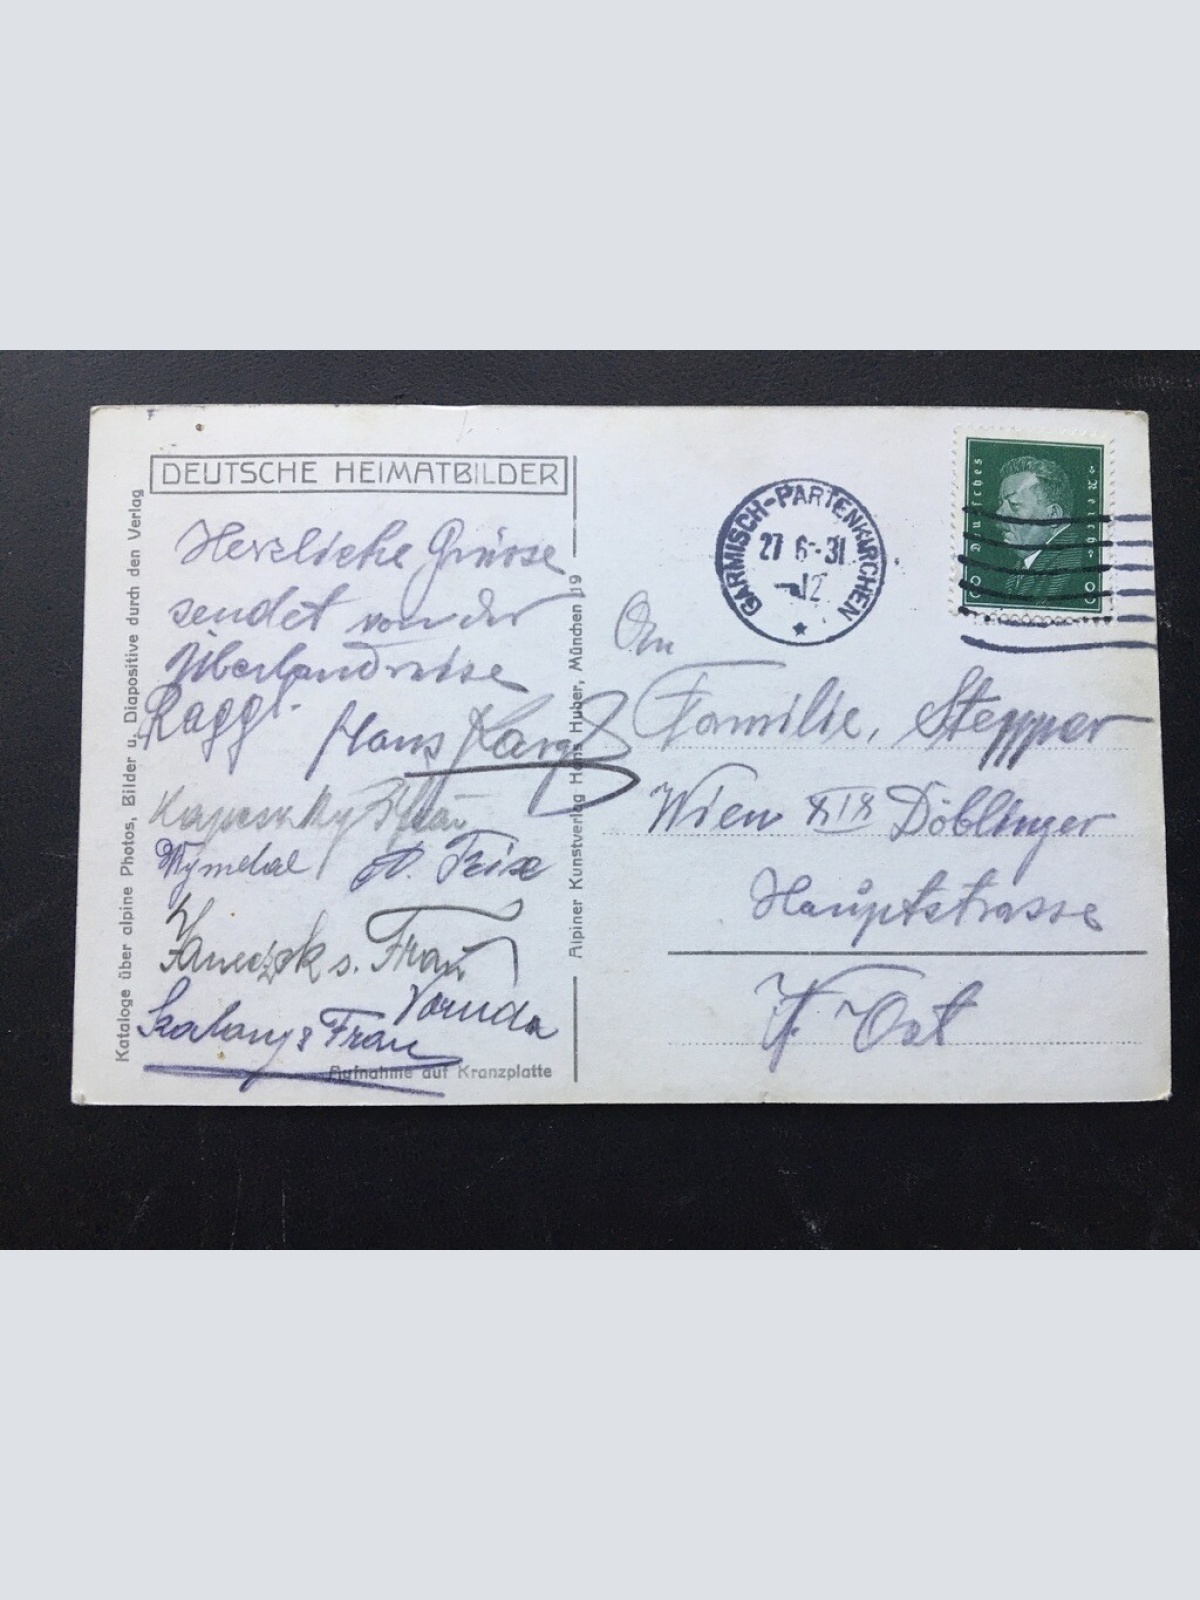 DEUTSCHE HEIMATBILDER
Herzliche Grüsse
sendet von der
Überlandreise
Raggl.
Hans Karg
Wymetal
Frau
Voruda
& Frau
Aufnahme auf Kranzplatte
Kataloge über alpine Photos, Bilder u. Diapositive durch den Verlag
Alpiner Kunstverlag Hans Huber, München 19
GARMISCH-PARTENKIRCHEN
27 6 - 31
-12
Deutsches Reich
8 8
An
Familie, Stepper
Wien XIX Döblinger
Hauptstrasse
Ost